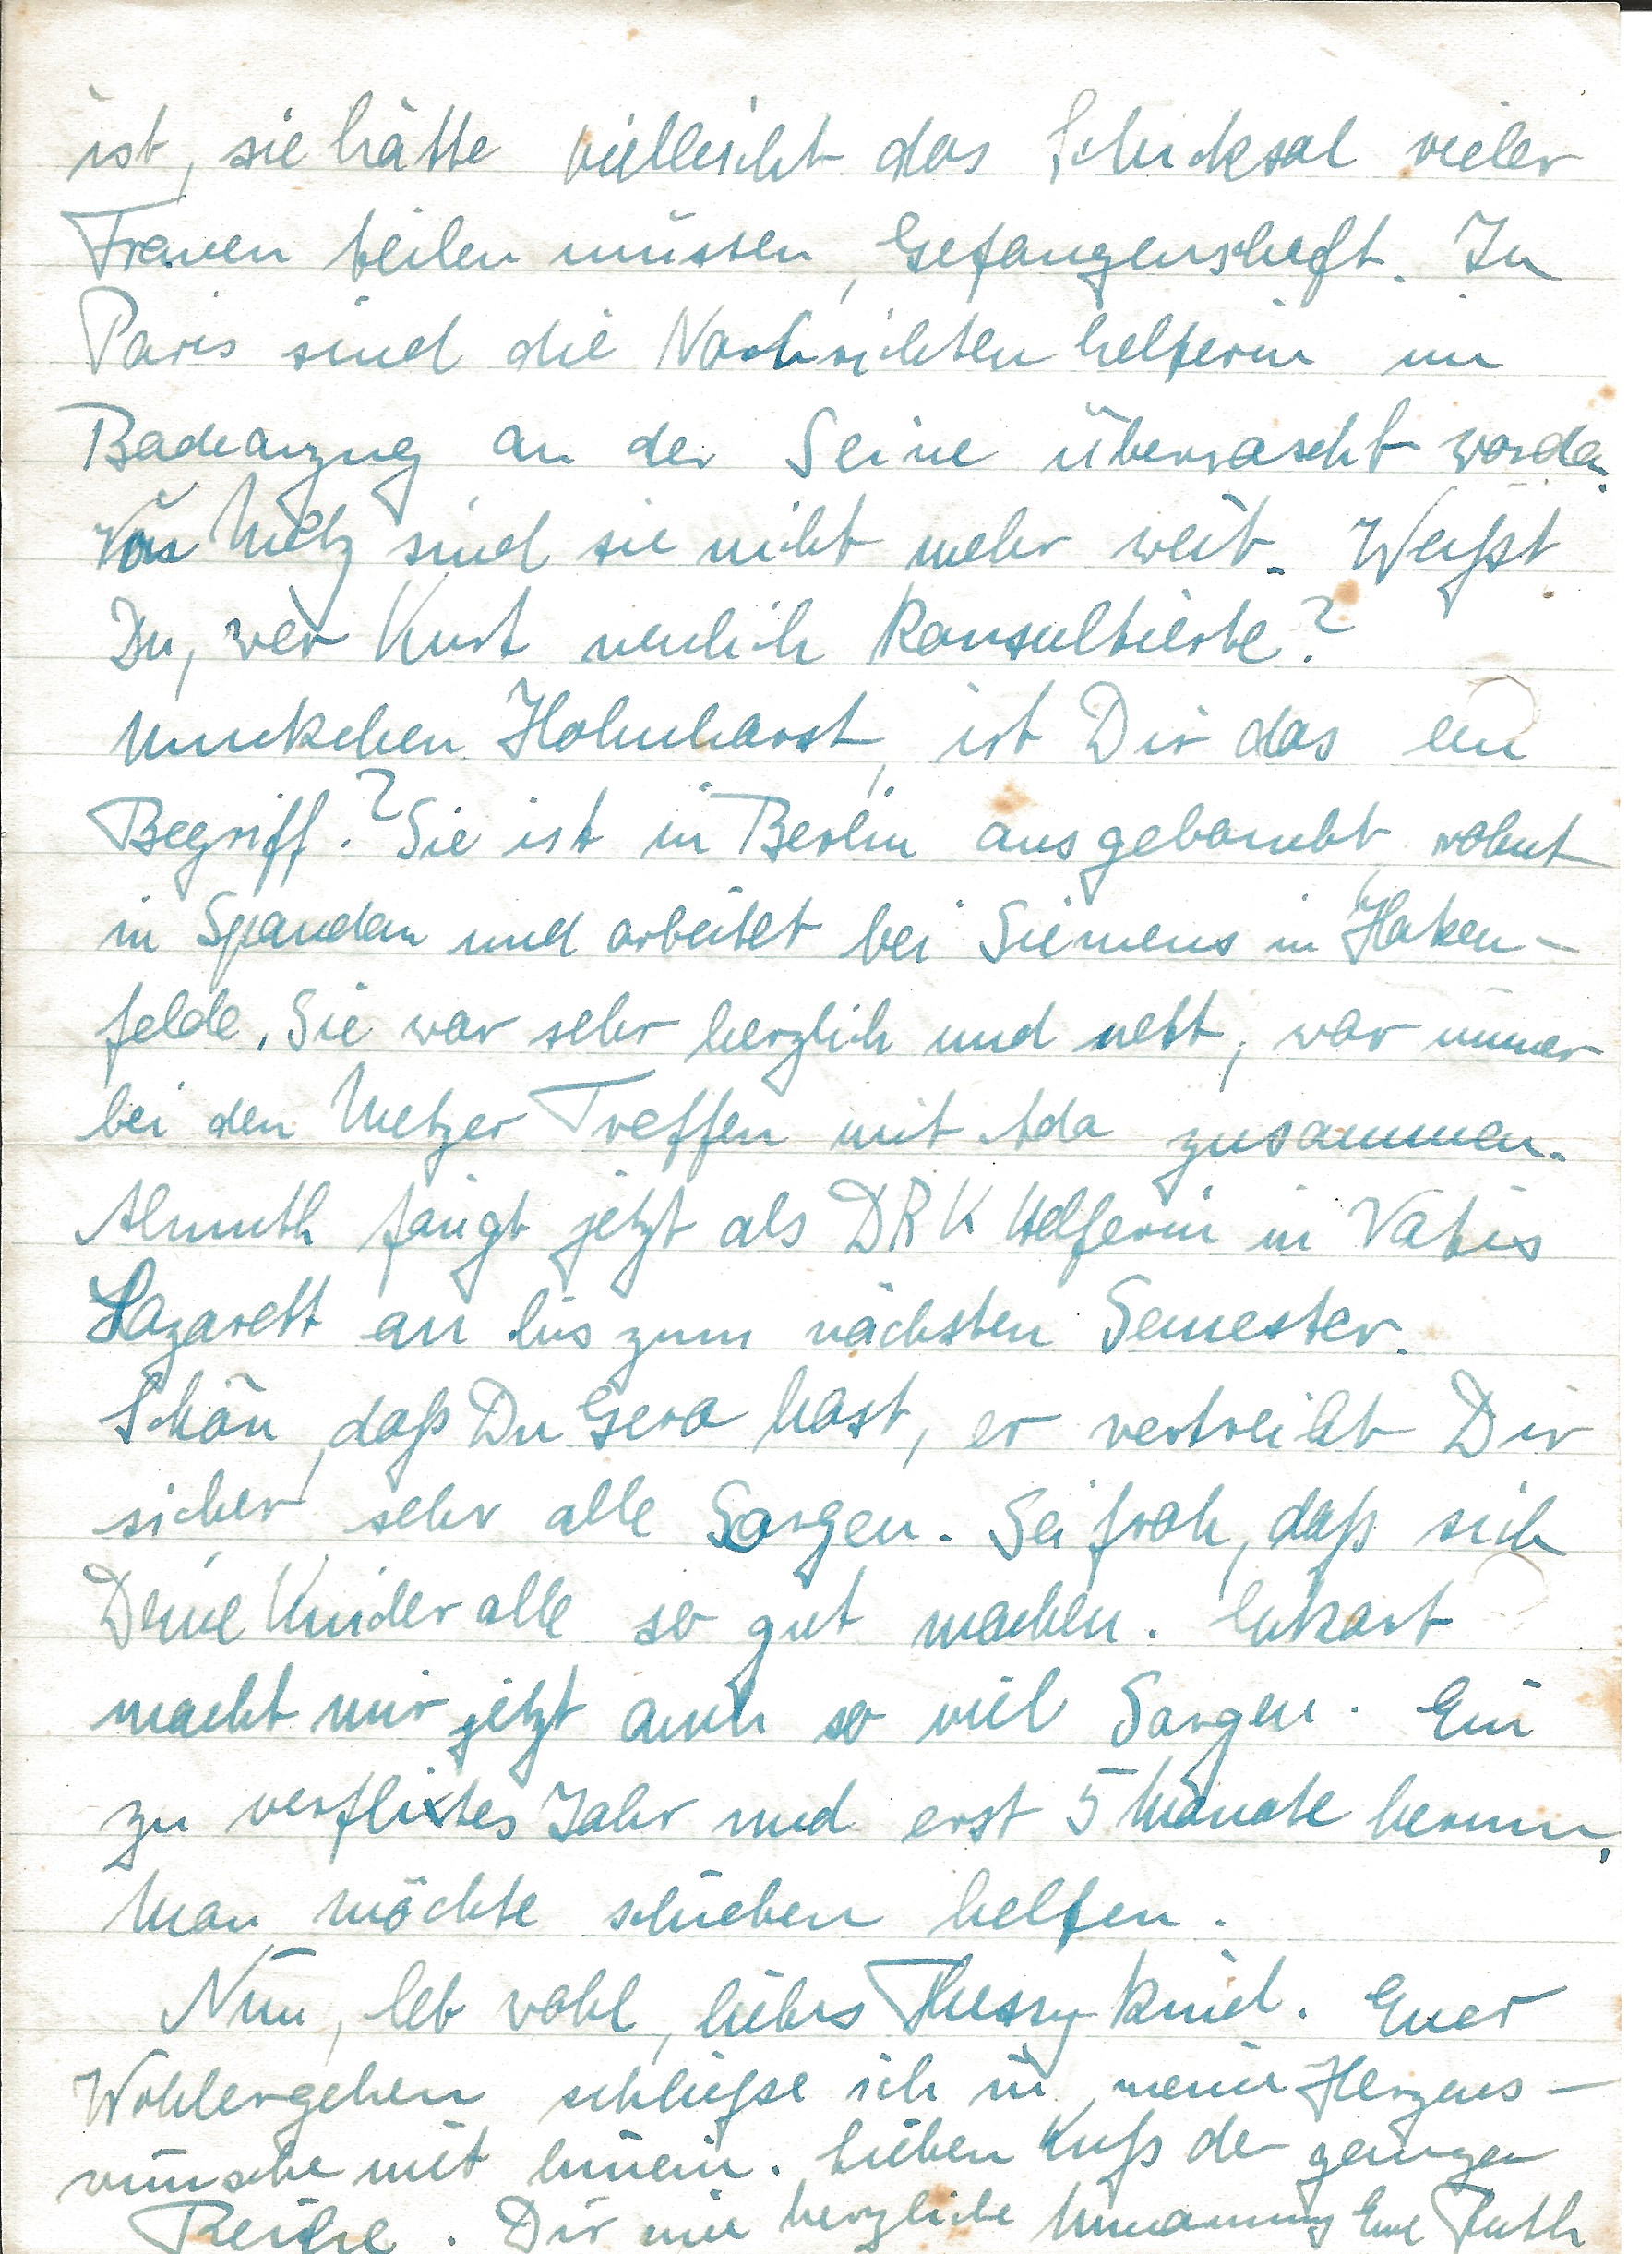 ist, sie hätte vielleicht das Schicksal vieler
Frauen teilen müssen, Gefangenschaft. In
Paris sind die Nachrichtenhelferin im
Badeanzug an der Seine überrascht worden.
Von Metz sind sie nicht mehr weit. Weißt
Du, wer Kurt neulich konsultierte?
Muckchen Hohnhorst, ist Dir das ein
Begriff? Sie ist in Berlin ausgebombt, wohnt
in Spandau und arbeitet bei Siemens in Haken-
felde. Sie war sehr herzlich und nett, war immer
bei den Metzer Treffen mit Ada zusammen.
Almuth fängt jetzt als DRK Helferin in Vatis
Lazarett an bis zum nächsten Semester.
Schön, daß Du Gero hast, er vertreibt Dir
sicher sehr alle Sorgen. Sei froh, daß sich
Deine Kinder alle so gut machen. Eckart
macht mir jetzt auch so viel Sorgen. Ein
zu verflixtes Jahr und erst 5 Monate herum.
Man möchte schieben helfen.
Nun, leb wohl, liebes Thussykind. Euer
Wohlergehen schließe ich in meine Herzens-
wünsche mit hinein. Lieben Kuß der ganzen
Reihe. Dir eine herzliche Umarmung Eure Ruth